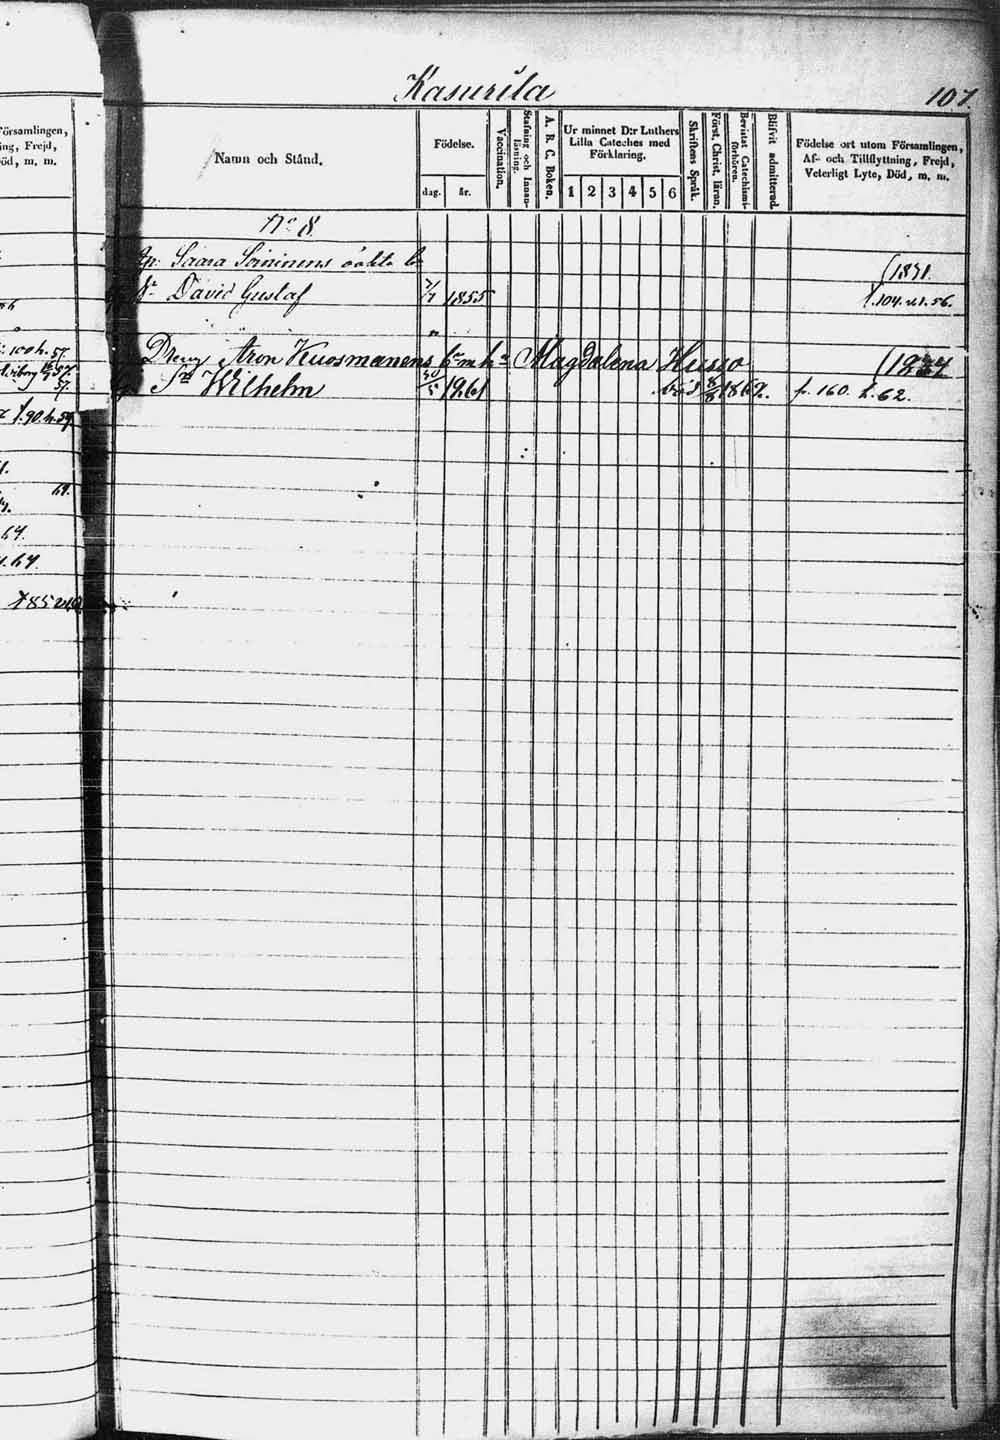 Kasurila
107.
Namn och Stånd.
Födelse.
dag.
år.
Vaccination.
Stafning och Innan-
läsning.
A. B. C. Boken.
Ur minnet D:r Luthers
Lilla Cateches med
Förklaring.
1 2 3 4 5 6
Skriftens Språk.
Först. Christ. läran.
Bevistat Catechismi-
förhören.
Blifvit admitterad.
Födelse ort utom Församlingen,
Af- och Tillflyttning, Frejd,
Veterligt Lyte, Död, m. m.
No 8.
Saara Soininens oäkta
(1831.
David Gustaf 1855 f. 104. 56.
Dreng Aron Kuosmanens Magdalena Husso
Wilhelm 1861 död 8/8 1862. f. 160. h. 62.
Församlingen,
ing, Frejd,
Död, m. m.
100 h. 57.
57.
f. 90. h. 59
64.
64.